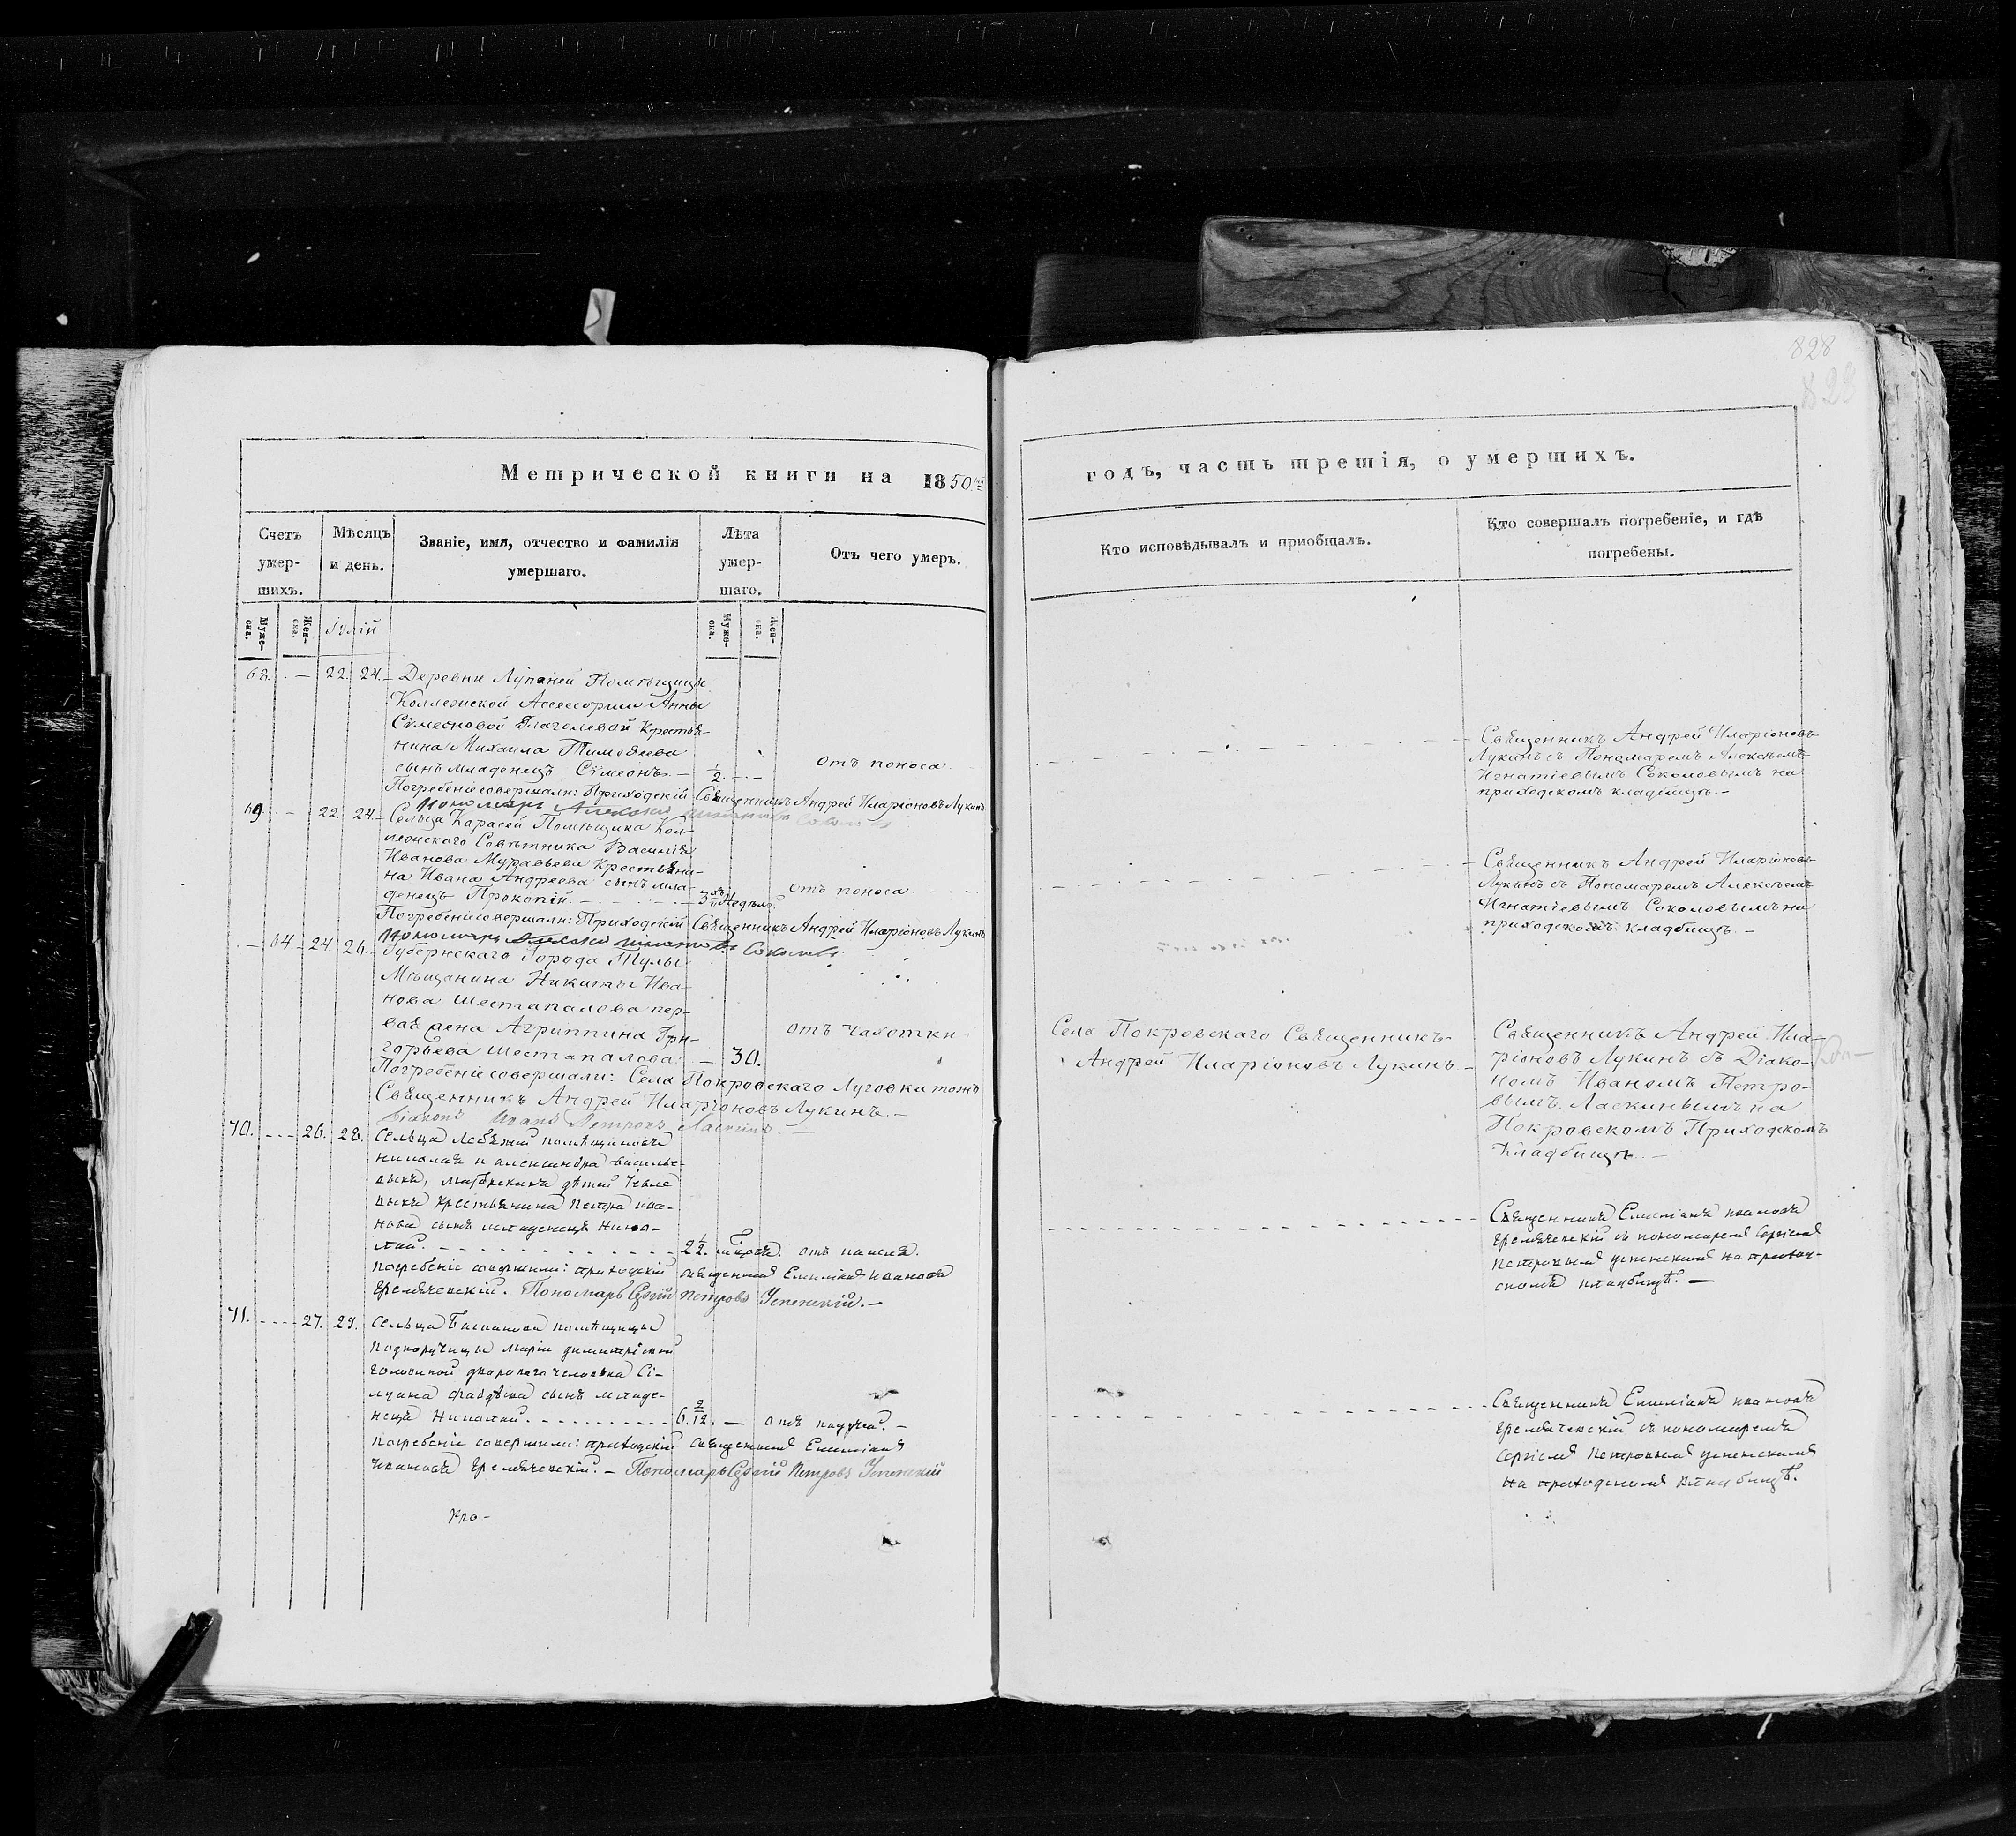 828
823
Метрической книги на 1850й
годъ, часть третія, о умершихъ.
Счетъ умер-шихъ.
Мѣсяцъ и день.
Званіе, имя, отчество и фамилія умершаго.
Лѣта умер-шаго.
Отъ чего умеръ.
Кто исповѣдывалъ и приобщалъ.
Кто совершалъ погребеніе, и гдѣ погребены.
Муже-ска.
Жен-ска.
Іулій
Муже-ска.
Жен-ска.
68. — 22. 24. Деревни Лупаней Помѣщицы
Коллежской Ассессорши Анны
Сѵмеоновой Глаголевой Крестья-
нина Михаила Тимоѳеева
сынъ младенецъ Сѵмеонъ. — 1/2. — отъ поноса
Погребеніе совершали: Приходскій Священникъ Андрей Иларіоновъ Лукинъ
Пономарь Алексей Игнатьевъ Соколовъ
Священникъ Андрей Иларіоновъ
Лукинъ съ Пономаремъ Алексѣемъ
Игнатіевымъ Соколовымъ на
приходскомъ кладбищѣ. —
69. — 22. 24. Сельца Карасей Помѣщика Кол-
лежскаго Совѣтника Василія
Иванова Муравьева Крестьяни-
на Ивана Андреева сынъ мла-
денецъ Прокопій. — 3хъ Недѣль. отъ поноса.
Погребеніе совершали: Приходскій Священникъ Андрей Иларіоновъ Лукинъ
Пономарь Алексей Игнатьевъ Соколовъ
Священникъ Андрей Иларіоновъ
Лукинъ съ Пономаремъ Алексѣемъ
Игнатіевымъ Соколовымъ на
приходскомъ кладбищѣ. —
— 64. 24. 26. Губернскаго Города Тулы
Мѣщанина Никиты Ива-
нова Шестапалова пер-
вая жена Агриппина Гри-
горьева Шестапалова — 30. отъ чахотки
Погребеніе совершали: Села Покровскаго Луговки тожъ
Священникъ Андрей Иларіоновъ Лукинъ. —
Діаконъ Иванъ Петровъ Ласкинъ
Села Покровскаго Священникъ
Андрей Иларіоновъ Лукинъ
Священникъ Андрей Ила-
ріоновъ Лукинъ съ Діако-
номъ Иваномъ Петро-
вымъ Ласкинымъ на
Покровскомъ Приходскомъ
Кладбищѣ. —
70. 26. 28. Сельца Лебяжей помѣщиковъ
Николая и Александра Василье-
выхъ,
крестьянина Петра Ива-
нова сынъ младенецъ Нико-
лай. 2 1/2. отъ кашля.
Погребеніе совершали: приходскій священникъ Емиліанъ Ивановъ
Пономарь Сергій Петровъ Успенскій. —
Священникъ Емиліанъ Ивановъ
съ пономаремъ Сергіемъ
Петровымъ Успенскимъ на приход-
скомъ кладбищѣ. —
71. 27. 29. Сельца помѣщицы
Подпоручицы Маріи Димитріевой
двороваго человѣка Си-
луана Фаддѣева сынъ младе-
нецъ Николай. 6. 2/12. — отъ
Погребеніе совершили: приходскій священникъ Емиліанъ
Ивановъ — Пономарь Сергій Петровъ Успенскій
Священникъ Емиліанъ Ивановъ
съ пономаремъ
Сергіемъ Петровымъ Успенскимъ
на приходскомъ кладбищѣ.